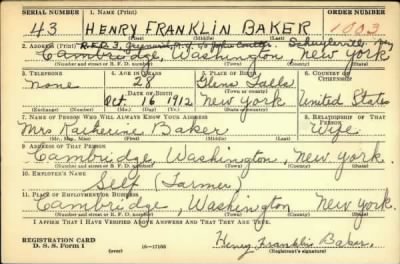 SERIAL NUMBER 1. NAME (Print) ORDER NUMBER
43 HENRY FRANKLIN BAKER 1003
(First) (Middle) (Last)
2. ADDRESS (Print) R.F.D. 3, N.Y. c/o John Schuylerville
Cambridge, Washington, New York
(Number and street or R. F. D. number) (Town) (County) (State)
3. TELEPHONE 4. AGE IN YEARS 5. PLACE OF BIRTH 6. COUNTRY OF CITIZENSHIP
None 28 Glens Falls
DATE OF BIRTH (Town or county)
Oct. 16 1912 New York United States
(Exchange) (Number) (Mo.) (Day) (Yr.) (State or country)
7. NAME OF PERSON WHO WILL ALWAYS KNOW YOUR ADDRESS 8. RELATIONSHIP OF THAT PERSON
Mrs Katherine Baker Wife
(Mr., Mrs., Miss) (First) (Middle) (Last)
9. ADDRESS OF THAT PERSON
Cambridge, Washington, New York.
(Number and street or R. F. D. number) (Town) (County) (State)
10. EMPLOYER'S NAME
Self (Farmer)
11. PLACE OF EMPLOYMENT OR BUSINESS
Cambridge, Washington New York.
(Number and street or R. F. D. number) (Town) (County) (State)
I AFFIRM THAT I HAVE VERIFIED ABOVE ANSWERS AND THAT THEY ARE TRUE.
REGISTRATION CARD
D. S. S. Form 1 (over) 16—17105 Henry Franklin Baker.
(Registrant's signature)